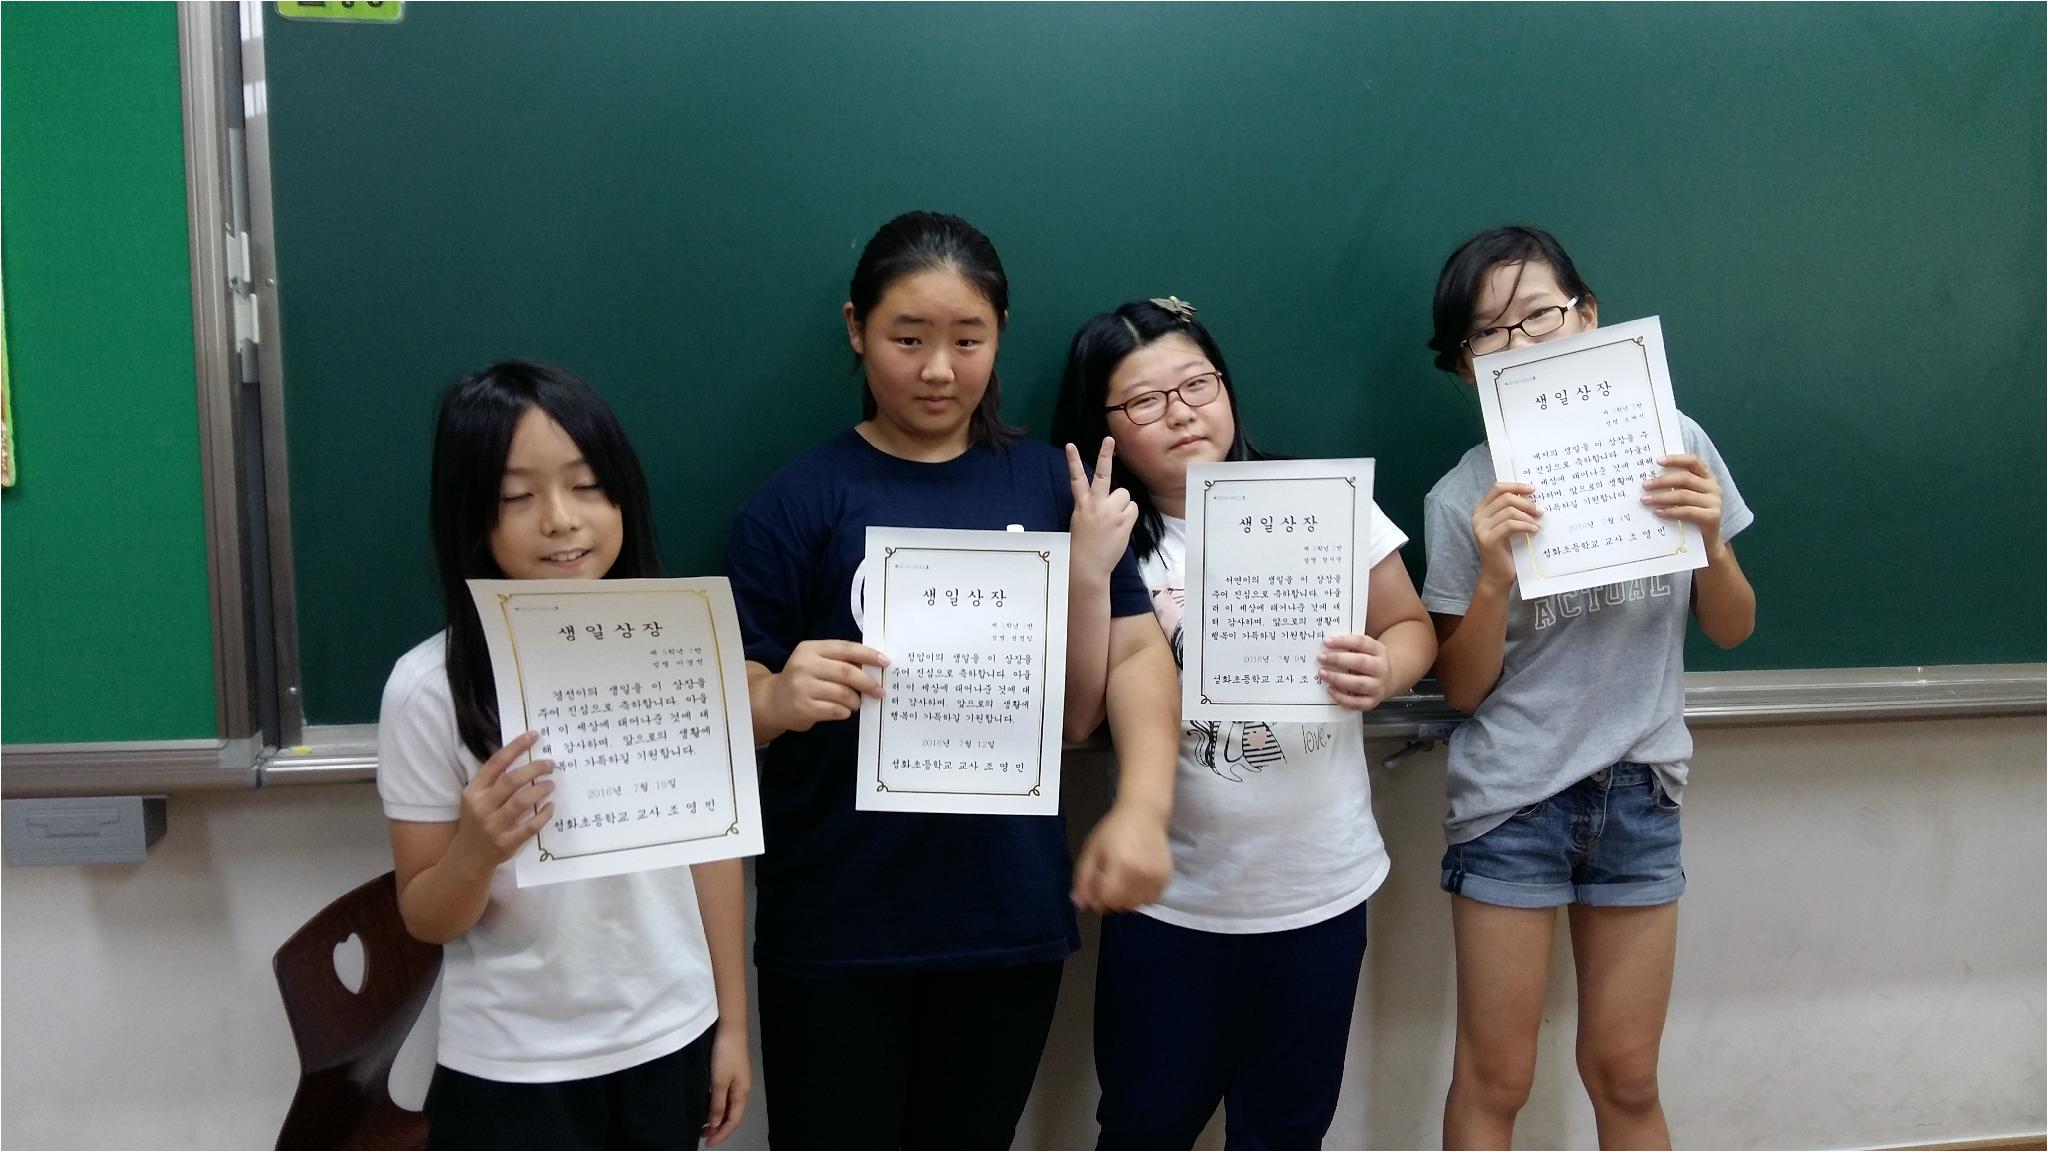 생 일 상 장
경선이의 생일을 이 상장을
주어 진심으로 축하합니다. 아울
러 이 세상에 태어나준 것에 대
해 감사하며, 앞으로의 생활에
행복이 가득하길 기원합니다.
2016년 7월 19일
성화초등학교 교사 조 영 민
생 일 상 장
정임이의 생일을 이 상장을
주어 진심으로 축하합니다. 아울
러 이 세상에 태어나준 것에 대
해 감사하며, 앞으로의 생활에
행복이 가득하길 기원합니다.
2016년 7월 12일
성화초등학교 교사 조 영 민
생 일 상 장
서연이의 생일을 이 상장을
주어 진심으로 축하합니다. 아울
러 이 세상에 태어나준 것에 대
해 감사하며, 앞으로의 생활에
행복이 가득하길 기원합니다.
2016년 7월 9일
성화초등학교 교사 조 영
love
생 일 상 장
예지의 생일을 이 상장을 주
어 진심으로 축하합니다. 아울러
이 세상에 태어나준 것에 대해
감사하며, 앞으로의 생활에 행복
가득하길 기원합니다.
2016년 7월 4일
성화초등학교 교사 조 영 민
ACTUAL